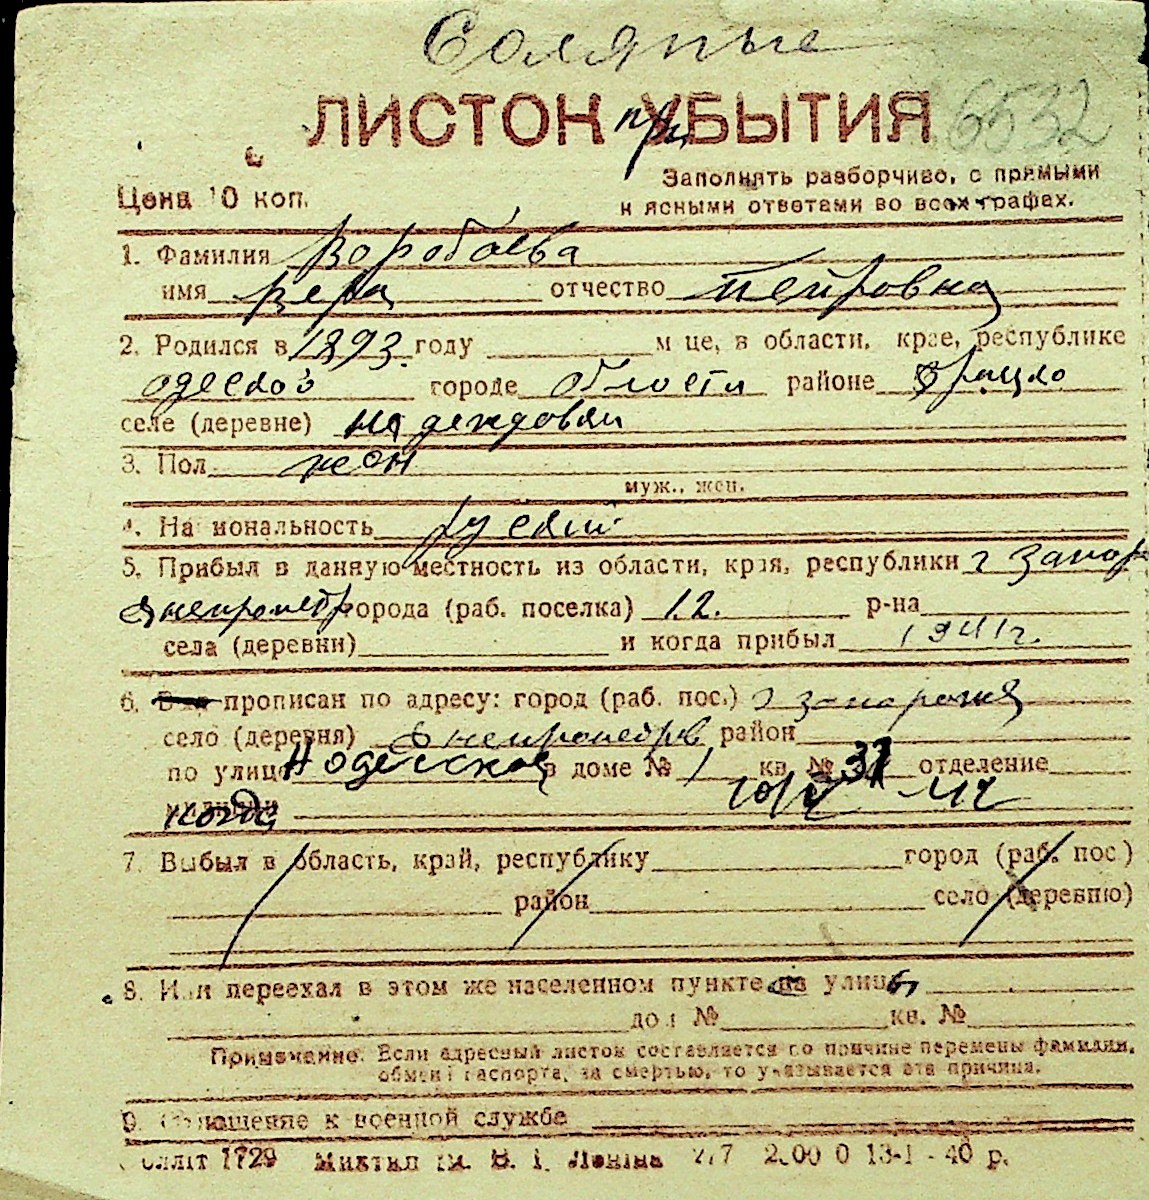 Соляные
ЛИСТОК при УБЫТИЯ 6532
Заполнять разборчиво, с прямыми
Цена 10 коп. и ясными ответами во всех графах.
1. Фамилия Воробьева
имя Вера отчество Петровна
2. Родился в 1893. году м це, в области, крае, республике
одеской городе области районе
селе (деревне)
3. Пол жен
муж., жен.
4. Национальность руский
5. Прибыл в данную местность из области, края, республики г Запор
Днепропетр города (раб. поселка) 12. р-на
села (деревни) и когда прибыл 1941 г.
6. прописан по адресу: город (раб. пос.) г Запорожя
село (деревня) Днепропетров район
по улице в доме № 1 кв. № 37 отделение
когда
7. Выбыл в область, край, республику город (раб. пос.)
район село (деревню)
8. Или переехал в этом же населенном пункте на улицу
дом № кв. №
Примечание. Если адресный листок составляется по причине перемены фамилии,
обмен паспорта, за смертью, то указывается эта причина.
9. Отношение к военной службе
1729 В. І. Леніна 13-I - 40 р.